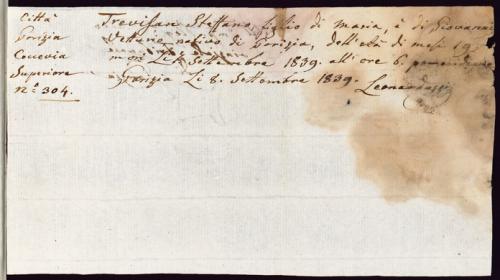 Città
Gorizia
Concevia
Superiore
n.° 304.
Trevisan Steffano, figlio di Maria, e di Giovanni
Vettorio nativo di Gorizia, dell'età di mesi 19.
morì li Settembre 1839. all'ore 6. pomeridiane
Gorizia li 8. Settembre 1839.